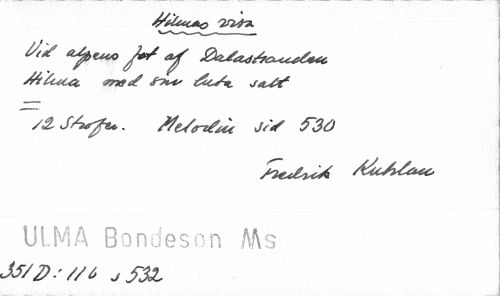 Hilmas visa
Vid alpens fot af Dalastranden
Hilma med sin luta satt
12 Strofer. Melodin sid 530
Fredrik Kuhlau
ULMA Bondeson Ms
351 D: 116 s 532